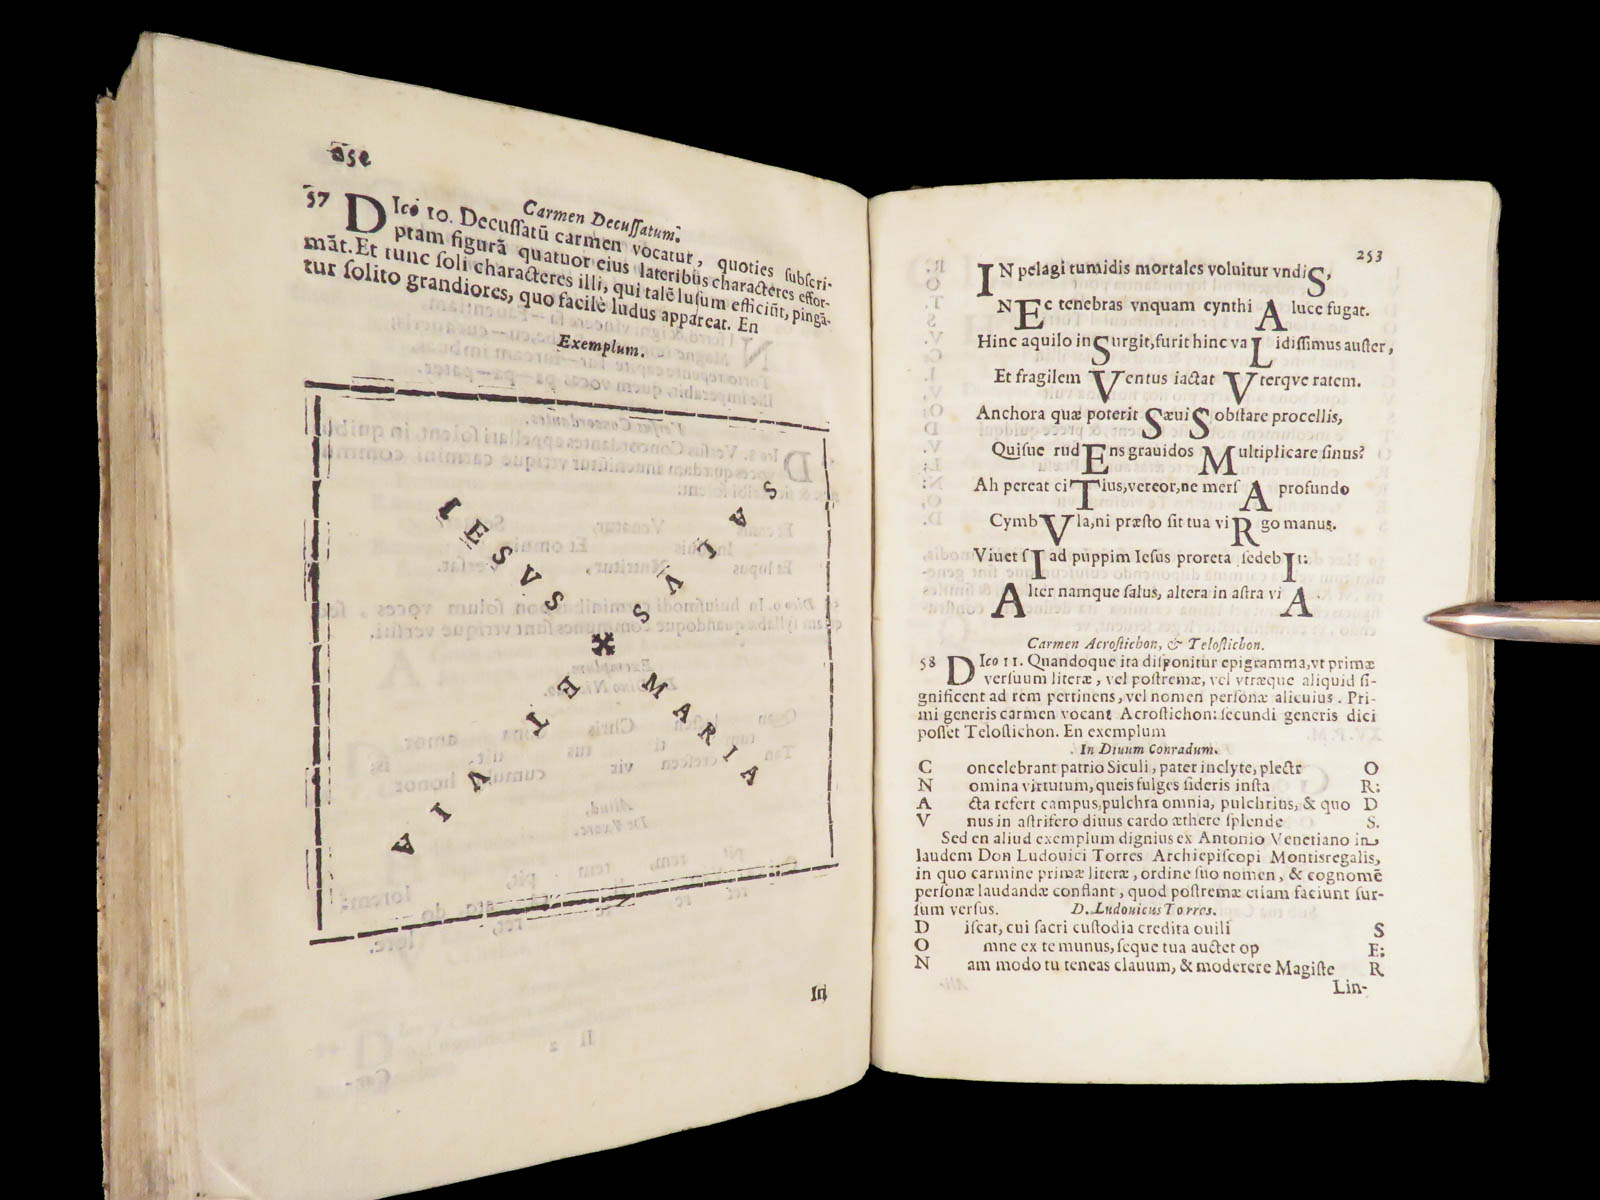 252
Carmen Decuſſatum.
57 DIco 10. Decuſſatū carmen vocatur, quoties ſubſcri-
ptam figurā quatuor eius lateribus characteres effor-
māt. Et tunc ſoli characteres illi, qui talē luſum efficiūt, pingā-
tur ſolito grandiores, quo facilè ludus appareat. En
Exemplum.
IESVS
SALVS
MARIA
ET
VIA
In
253
IN pelagi tumidis mortales voluitur vndiS,
NEc tenebras vnquam cynthiA luce fugat.
Hinc aquilo inSurgit, furit hinc vaLidiſſimus auſter,
Et fragilem Ventus iactat Vterqve ratem.
Anchora quæ poterit SæuiS obſtare procellis,
Quiſue rudEns grauidos Multiplicare ſinus?
Ah pereat ciTius, vereor, ne merſA profundo
CymbVla, ni præſto ſit tua viRgo manus.
Viuet ſIad puppim Ieſus proreta ſedebIt:
Alter namque ſalus, altera in aſtra viA.
Carmen Acroſtichon, & Teloſtichon.
58 DIco 11. Quandoque ita diſponitur epigramma, vt primæ
verſuum literæ, vel poſtremæ, vel vtræque aliquid ſi-
gnificent ad rem pertinens, vel nomen perſonæ alicuius. Pri-
mi generis carmen vocant Acroſtichon: ſecundi generis dici
poſſet Teloſtichon. En exemplum
In Diuum Conradum.
C oncelebrant patrio Siculi, pater inclyte, plectr O
N omina virtutum, queis fulges ſideris inſta R:
A cta refert campus, pulchra omnia, pulchrius, & quo D
V nus in aſtrifero diuus cardo æthere ſplende S.
Sed en aliud exemplum dignius ex Antonio Venetiano in
laudem Don Ludouici Torres Archiepiſcopi Montisregalis,
in quo carmine primæ literæ, ordine ſuo nomen, & cognomē
perſonæ laudandæ conſtant, quod poſtremæ etiam faciunt ſur-
ſum verſus. D. Ludouicus Torres.
D iſcat, cui ſacri cuſtodia credita ouili S
O mne ex te munus, ſeque tua auctet op E:
N am modo tu teneas clauum, & moderere Magiſte R
Lin-